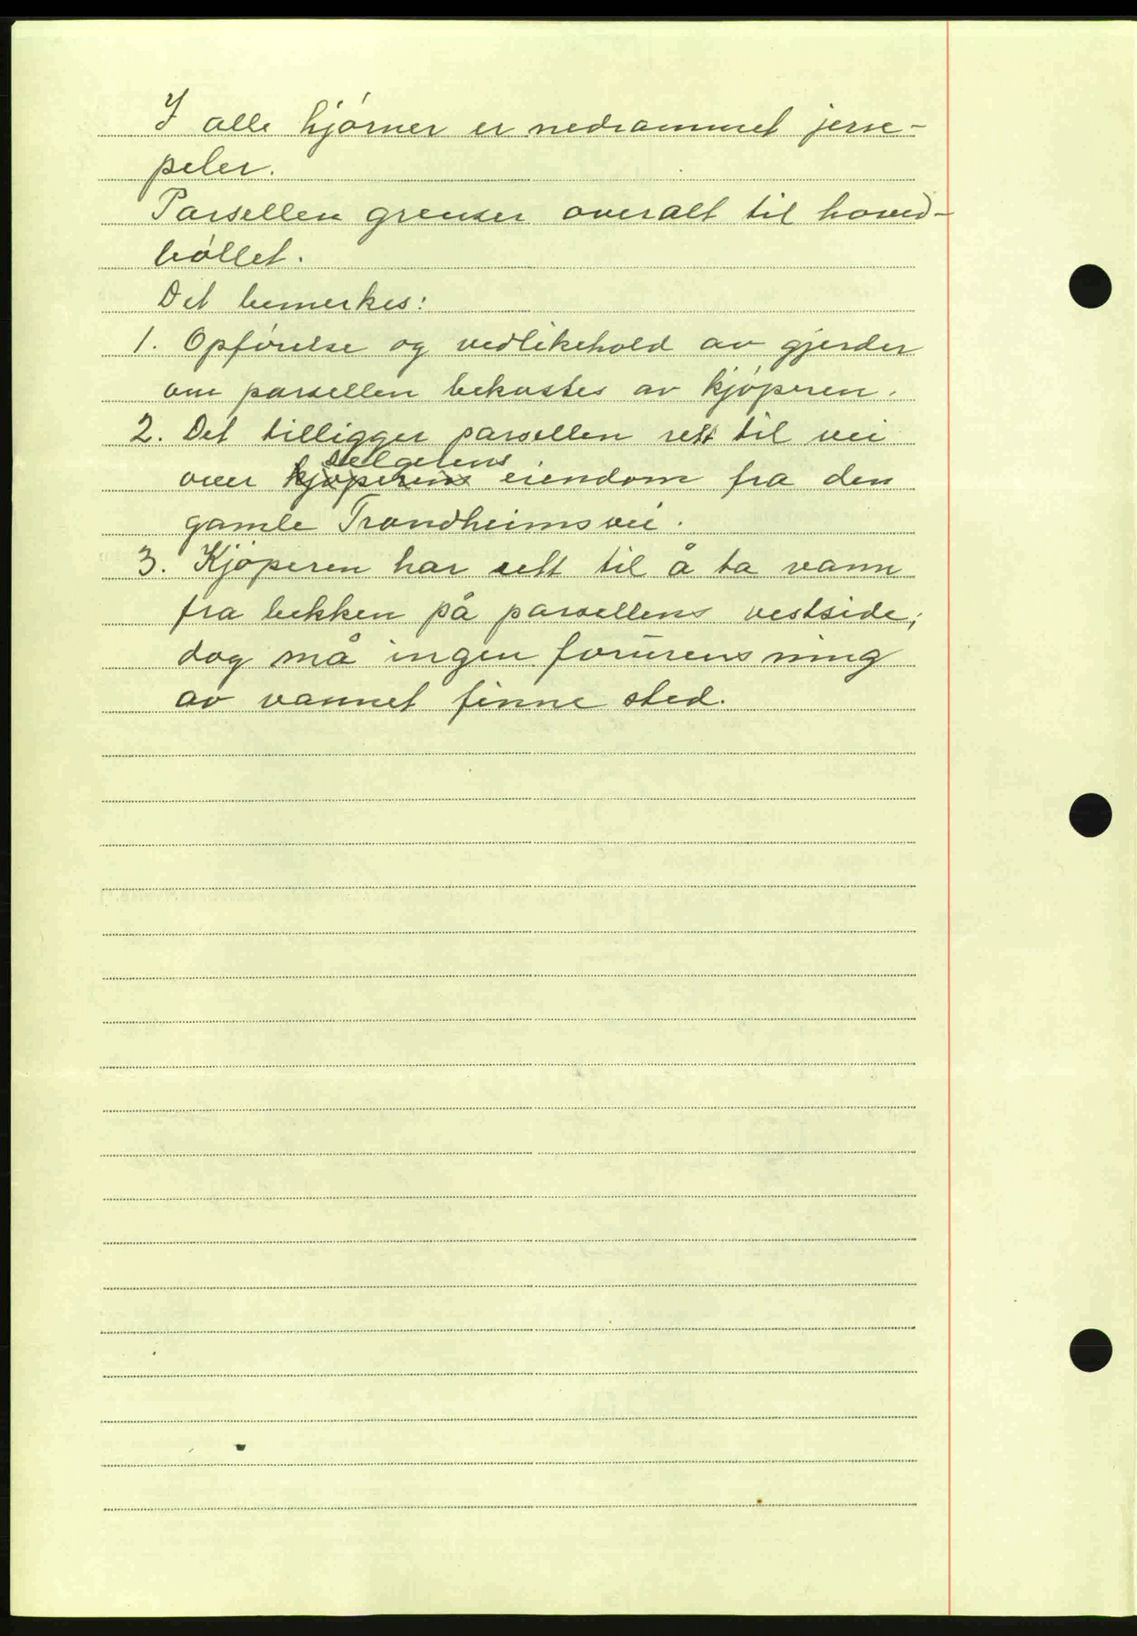 I alle hjørner er nedrammet jerne-
peler.
Parsellen grenser overalt til hoved-
bøllet.
Det bemerkes:
1. Opførelse og vedlikehold av gjerder
om parsellen bekostes av kjøperen.
2. Det tilligger parsellen rett til vei
selgerens
over kjøperens eiendom fra den
gamle Trondheimsvei.
3. Kjøperen har rett til å ta vann
fra bekken på parsellens vestside;
dog må ingen forurensning
av vannet finne sted.